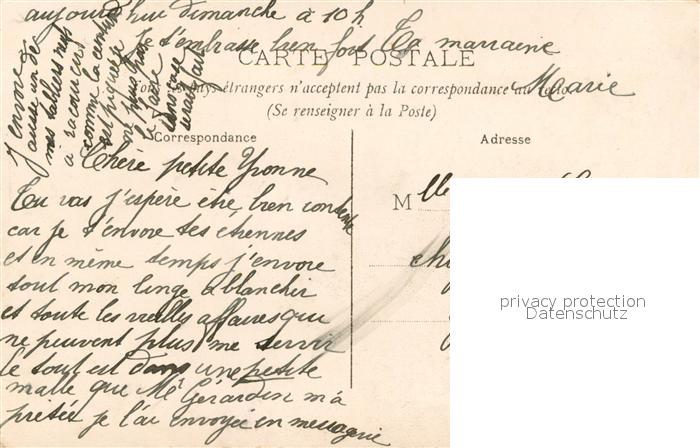 aujourd'hui dimanche à 10 h
Je t'embrasse bien fort Ta marraine
Marie
CARTE POSTALE
pays étrangers n'acceptent pas la correspondance au
(Se renseigner à la Poste)
Correspondance
Adresse
J'envoie
aussi un de
mes tabliers neuf
à raccourcir
comme la ceinture
est piquée
Chère petite Yvonne
Tu vas j'espère être bien contente
car je t'envoie tes étrennes
et en même temps j'envoie
tout mon linge à blanchir
et toute les vieilles affaires qui
ne peuvent plus me servir
le tout est dans une petite
malle que Mr Gérardin m'a
prêtée je l'ai envoyée en messagerie
Mlle
privacy protection
Datenschutz